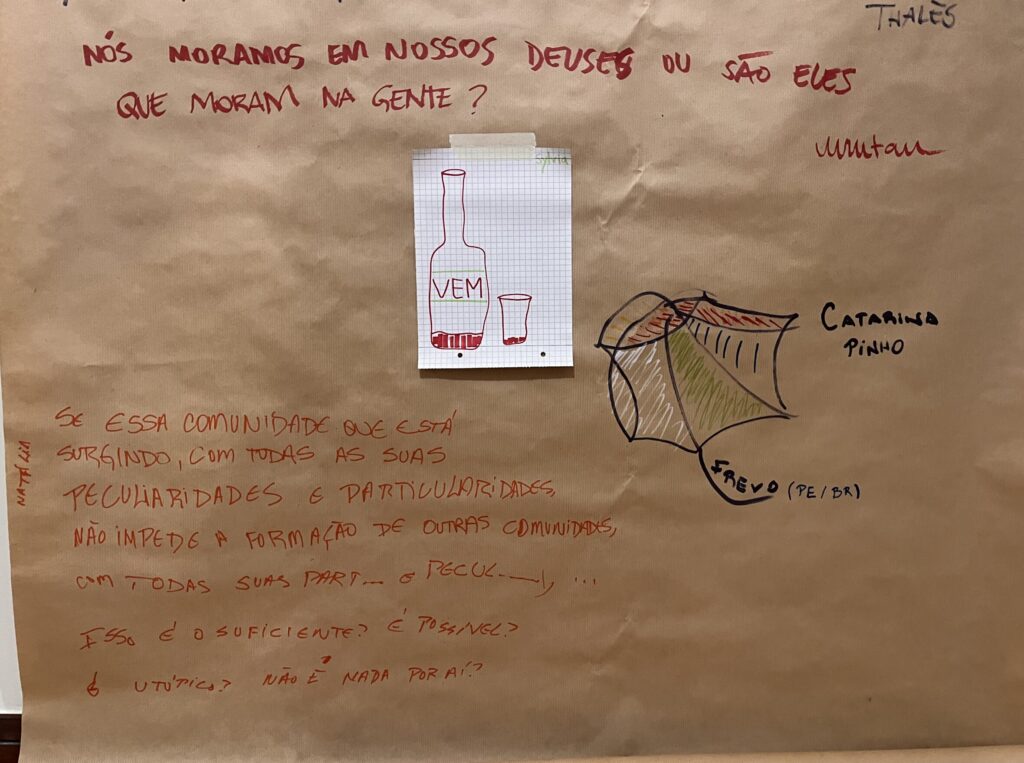 THALÈS
NÓS MORAMOS EM NOSSOS DEUSES OU SÃO ELES
QUE MORAM NA GENTE?
VEM
CATARINA
PINHO
FREVO (PE/BR)
NATÁLIA
SE ESSA COMUNIDADE QUE ESTÁ
SURGINDO, COM TODAS AS SUAS
PECULIARIDADES E PARTICULARIDADES,
NÃO IMPEDE A FORMAÇÃO DE OUTRAS COMUNIDADES,
COM TODAS SUAS PART... E PECUL..., ...
ISSO É O SUFICIENTE? É POSSÍVEL?
É UTÓPICO? NÃO É NADA POR AÍ?